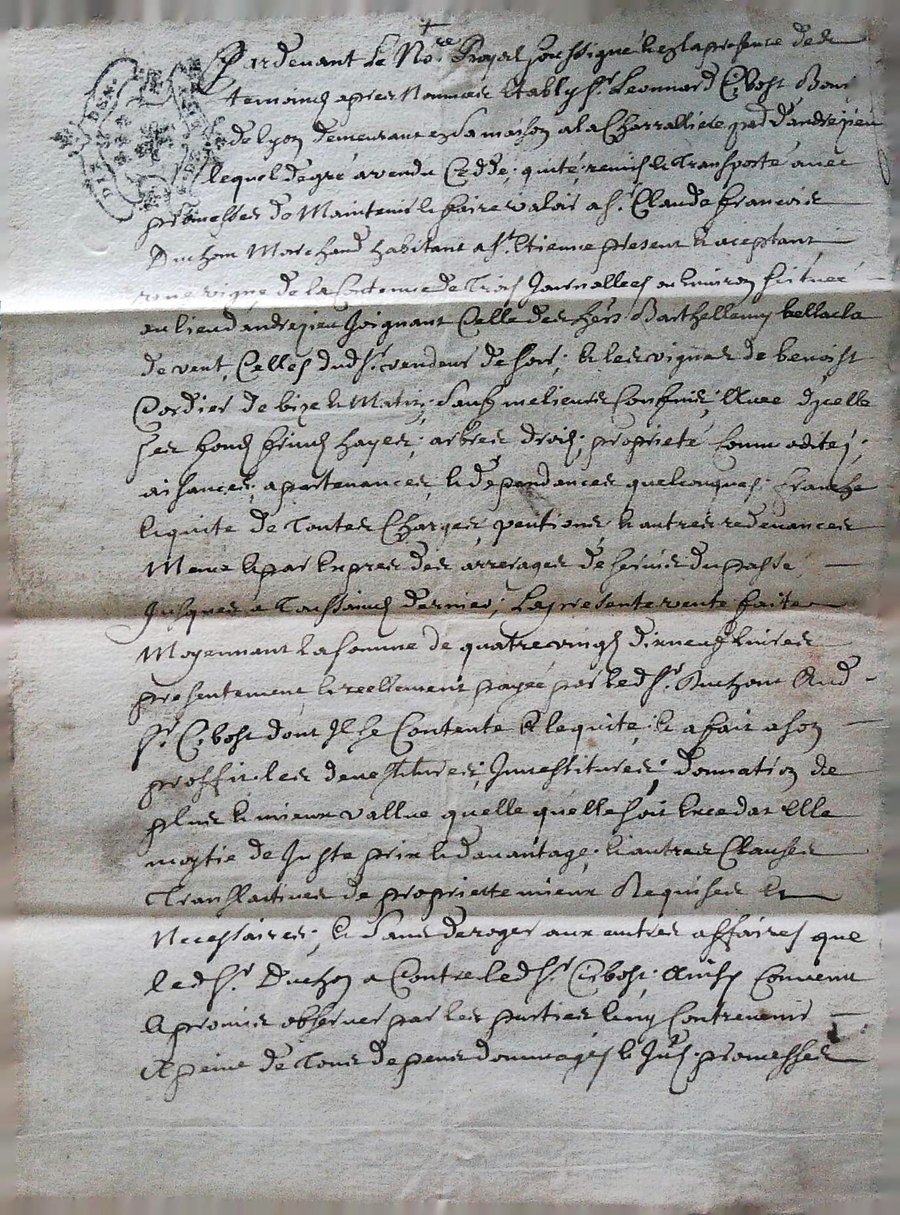 Pardevant Le No.re Royal Soussigné & en la presence des
temoins apres Nommes Estably Sr. Leonnard Cibost Bour
de Lyon demeurant en Sa maison a la Charralliere d'andrezieu
lequel de gré a vendu Cedde, quité, remis & Transporté avec
promesses de Maintenir & faire valoir a Sr. Claude francois
Duchon Marchand habitant a St. Etienne present & aceptant
vigne de la Contenue de Trois Journallees ou Environ Scituee
au lieu d'andrezieu Joignant Celle des hers Barthellemy bellacla
de vent, Celles dud Sr. vendeur de Soir; & les vignes de benoist
Cordier de bize & Matin; Sauf melieurs Confins; Avec d'ycelle
Ses fonds fruits hayes; arbres droits; proprieté Commodites;
aisances; apartenances, & dependances quelconques; franche
& quite de Toutes Charges, pentions & autres redevances
Meme & par Expres des arrerages de Servis du passé
Jusques a Toussaincts dernier; La presente vente faite
Moyennant la Somme de quatre vingts dixneuf livres
presentement & reellement payée par led Sr. Duchon Aud
Sr. Cibost dont Il Se Contente & le quite; & a fait a Son
proffit les devestitures; Investitures; donnation de
plus & mieux vallue quelle quelle Soit Excedat Elle
moytie de Juste prix & davantage; & autres Clauses
Translatives de propriette mieux Requises Et
Necessaires; & Sans deroger aux autres affaires que
led Sr. Duchon a Contre led Sr. Cibost; Ainsy Convenu
& promis observer par les parties & n'y Contrevenir
A peine de Tous depens dommages & Jnts. promesses